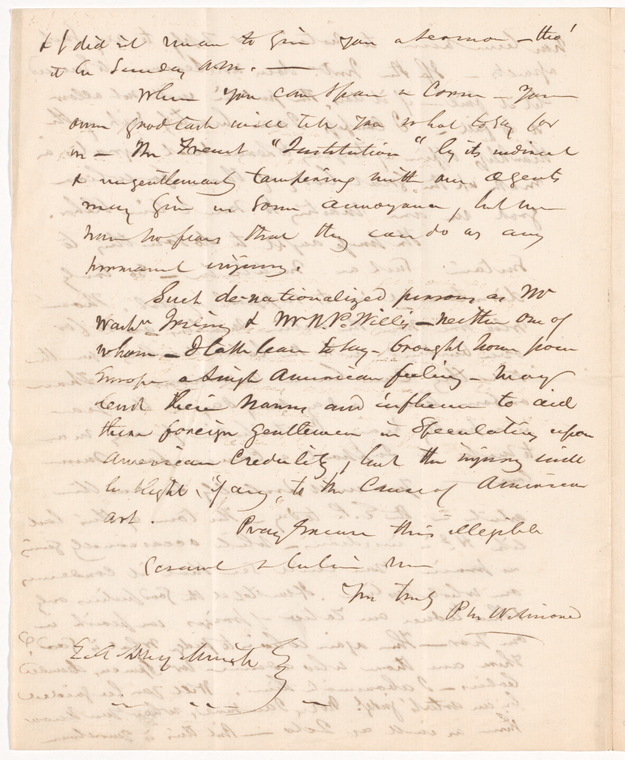 & I did not mean to give you a sermon – tho'
it be Sunday a.m. —
When you can spare a Corner – your
own good task will tell you what to say for
us – The French "Institution" by its indirect
& ungentlemanly tampering with our agents
may give us some annoyance, but we
have no fears that they can do us any
permanent injury.
Such de-nationalized persons as Mr
Washn Irving & Mr N. P. Willis – neither one of
whom – I take leave to say – brought home from
Europe a single American feeling – may
lend their names and influence to aid
these foreign gentlemen in speculating upon
American Credulity, but the injury will
be slight, if any, to the Cause of American
art.
Pray Excuse this illegible
scrawl & believe me
Yrs truly
P M Wetmore
E. A. Duyckinck